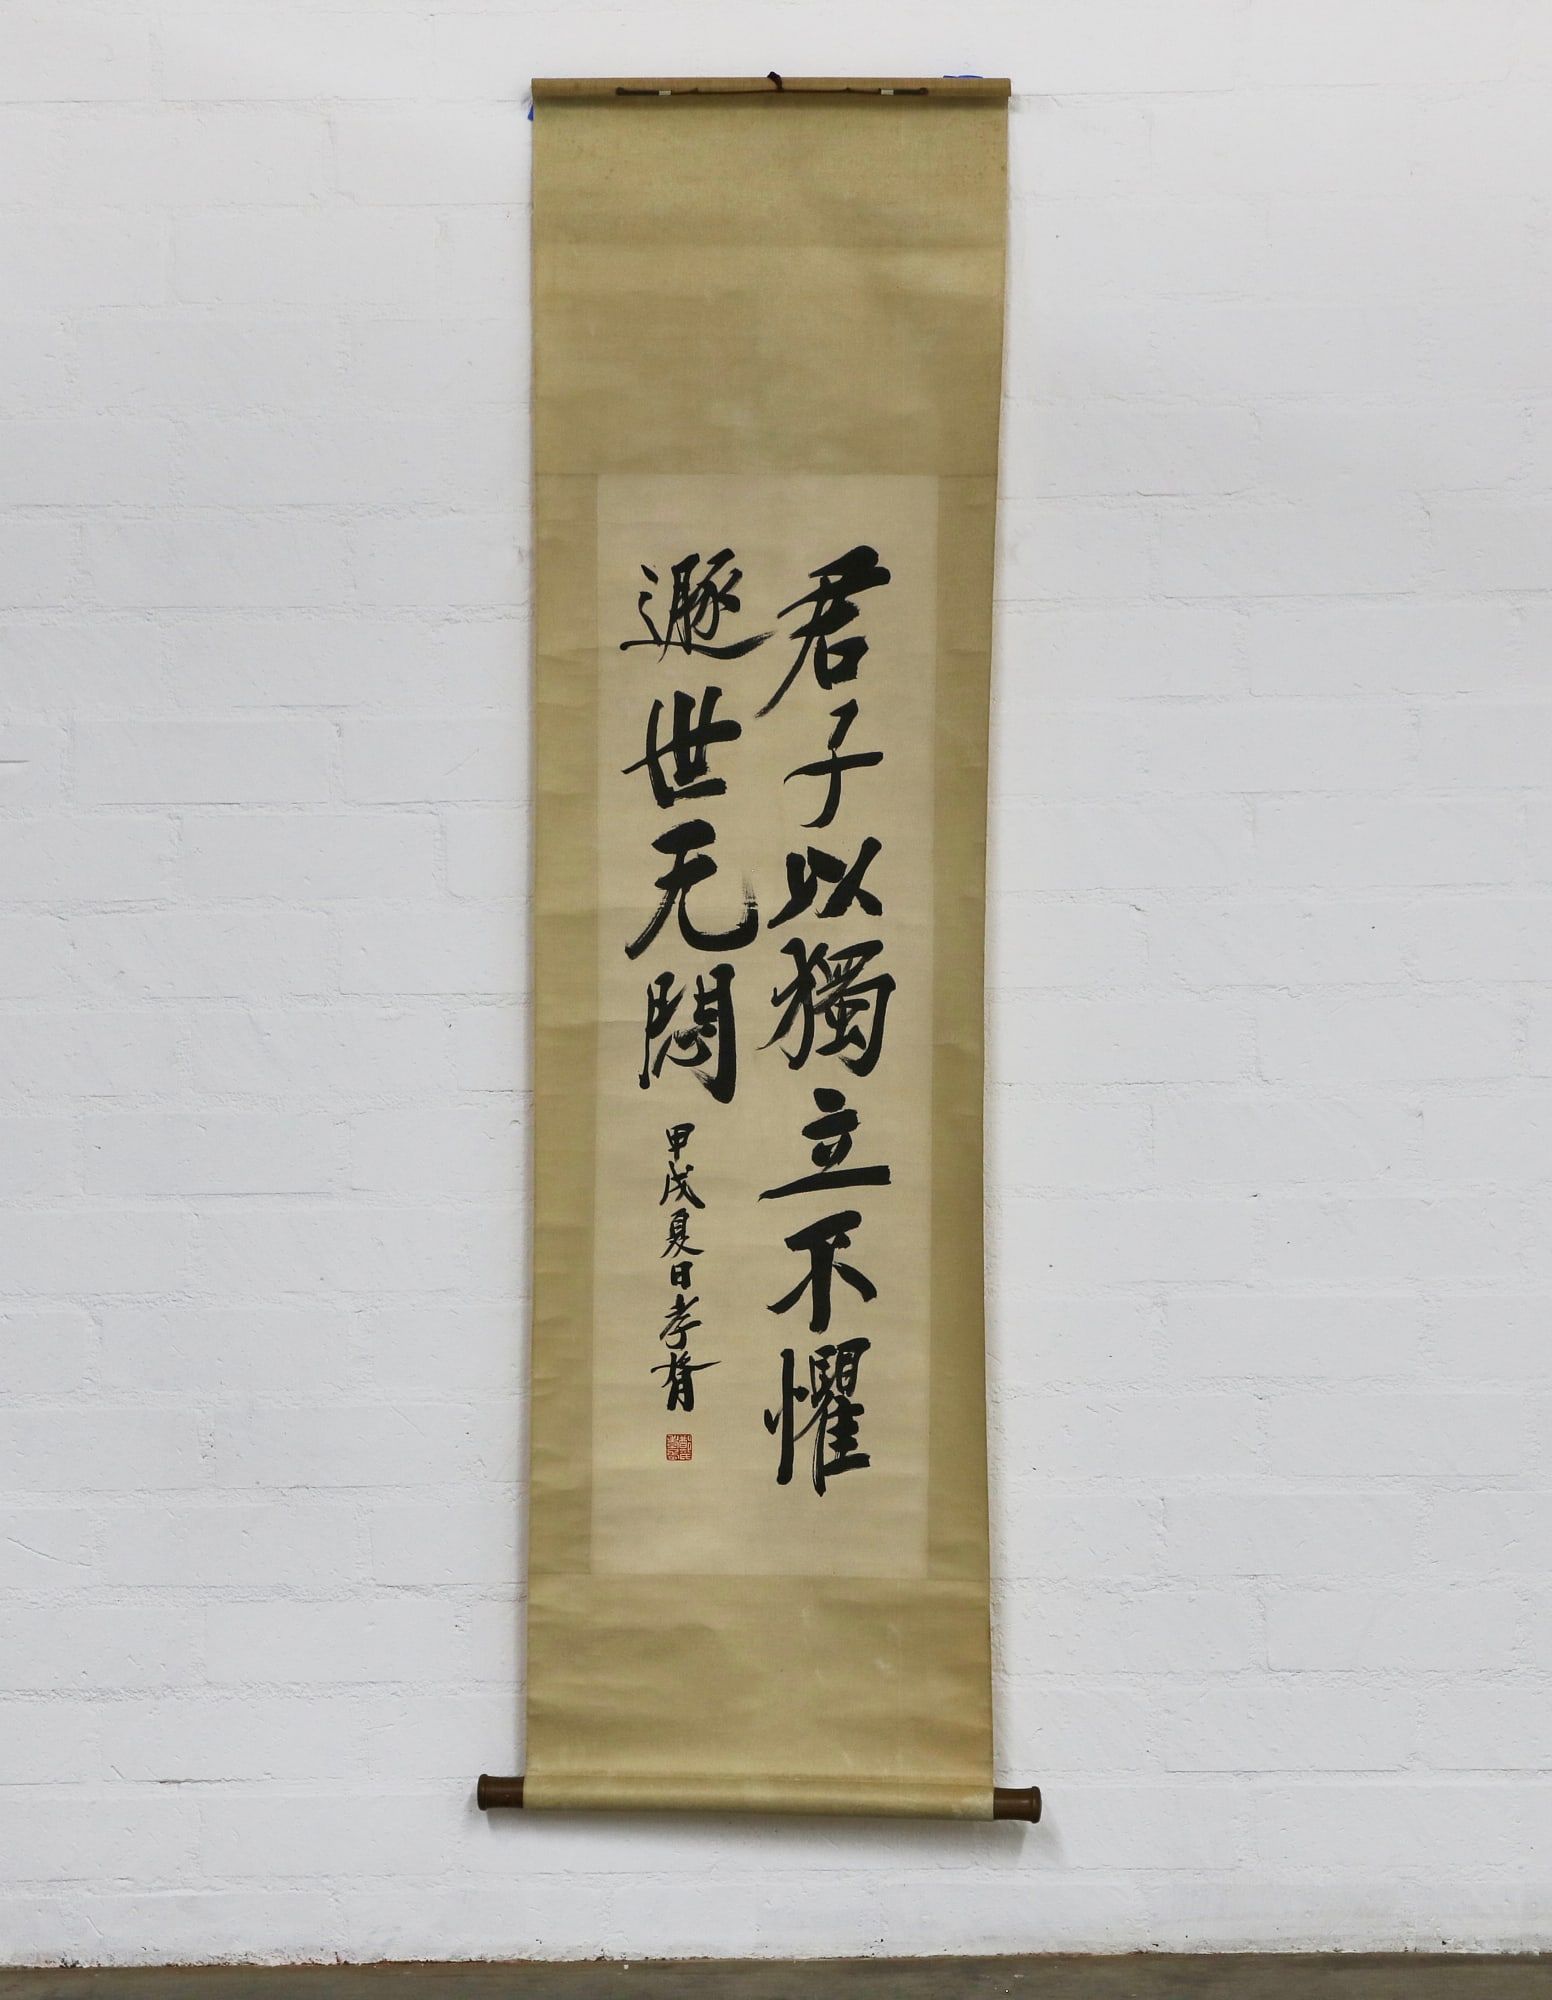 君子以獨立不懼
遯世无悶 甲戌夏日孝胥